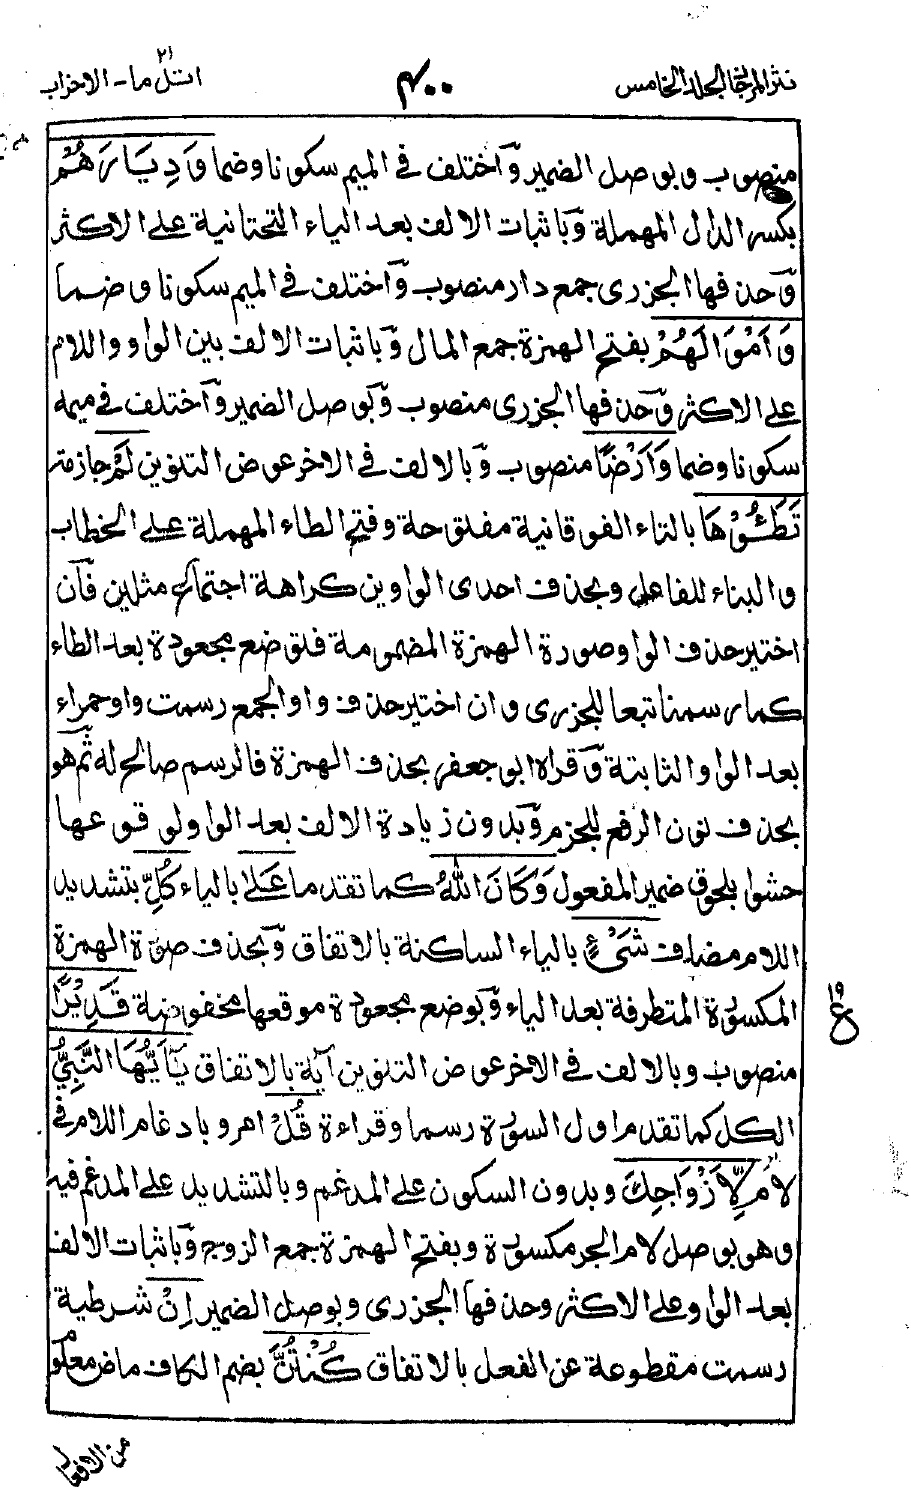 نثر المرجان الجلد الخامس
٤٠٠
اتل ما - الاحزاب
٢١
منصوب وبوصل الضمير وٓاختلف في الميم سكونا وضما وَدِيَارَهُمْ
بكسر الدال المهملة وٓباثبات الالف بعد الياء التحتانية على الاكثر
وٓحذفها الجزرى جمع دار منصوب وٓاختلف في الميم سكونا وضما
وَاَمْوَالَهُمْ بفتح الهمزة جمع المال وٓباثبات الالف بين الواو واللام
على الاكثر وٓحذفها الجزرى منصوب وٓبوصل الضمير وٓاختلف في ميمه
سكونا وضما وَاَرْضًا منصوب وٓبالالف في الاخر عوض التنوين لَمْ جازمة
تَطَـُٔوْهَا بالتاء الفوقانية مفتوحة وفتح الطاء المهملة على الخطاب
والبناء للفاعل وبحذف احدى الواوين كراهة اجتماع مثلين فٓان
اختير حذف الواو صورة الهمزة المضمومة فتوضع مجعودة بعد الطاء
كما رسمنا تبعا للجزرى وان اختير حذف واو الجمع رسمت واو حمراء
بعد الواو الثابتة وٓقراه ابو جعفر بحذف الهمزة فالرسم صالح له ثٓم هو
بحذف نون الرفع للجزم وٓبدون زيادة الالف بعد الواو لوقوعها
حشوا بلحوق ضمير المفعول وَكَانَ اللّٰهُ كما تقدما عَلٰى بالياء كُلِّ بتشديد
اللام مضاف شَىْءٍ بالياء الساكنة بالاتفاق وٓبحذف صورة الهمزة
المكسورة المتطرفة بعد الياء وٓبوضع مجعودة موقعها مخفوضة قَدِيْرًا
منصوب وبالالف في الاخر عوض التنوين آية بالاتفاق يٰٓاَيُّهَا النَّبِىُّ
الكل كما تقدم اول السورة رسما وقراءة قُلْ امر وبادغام اللام في
لام لِّاَزْوَاجِكَ وبدون السكون على المدغم وبالتشديد على المدغم فيه
وهو بوصل لام الجر مكسورة وبفتح الهمزة جمع الزوج وٓباثبات الالف
بعد الواو على الاكثر وحذفها الجزرى وبوصل الضمير اِنْ شرطية
رسمت مقطوعة عن الفعل بالاتفاق كُنْتُنَّ بضم الكاف ماض معلوم
١٩
ع
من الافعال